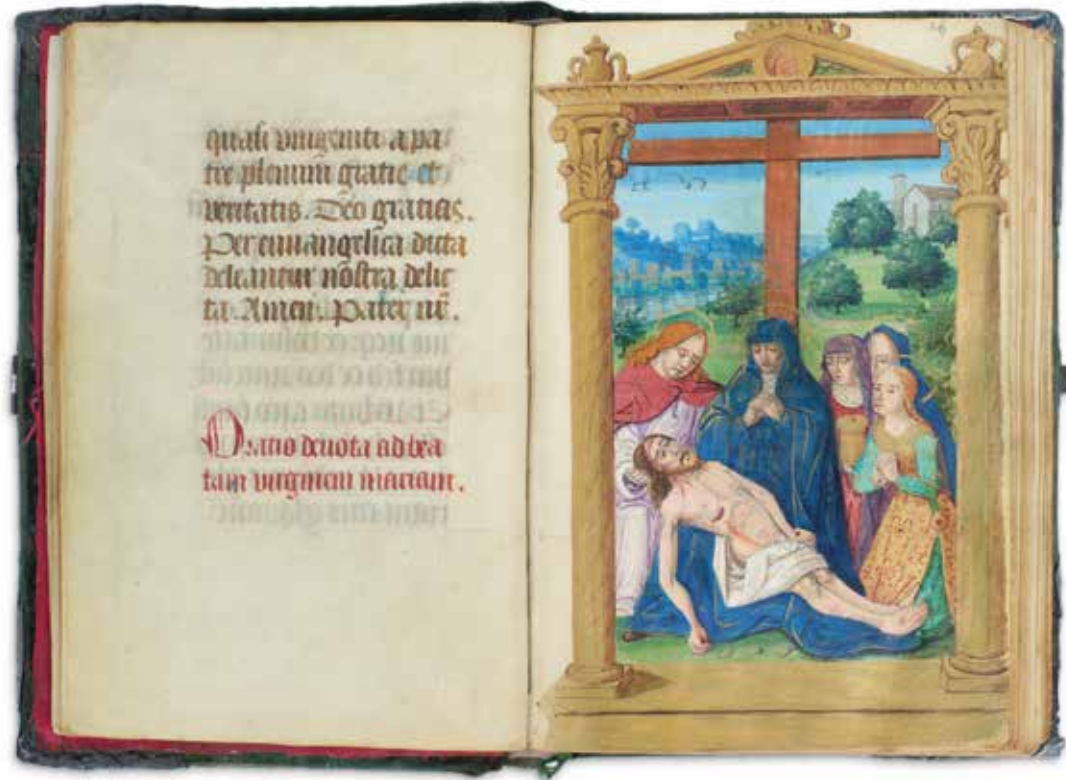 quasi vnigeniti a pa
tre plenum gratie et
veritatis. Deo gratias.
Per euuangelica dicta
deleantur nostra delic
ta. Amen. Pater nr̄.
Oratio deuota ad bea
tam virginem mariam.